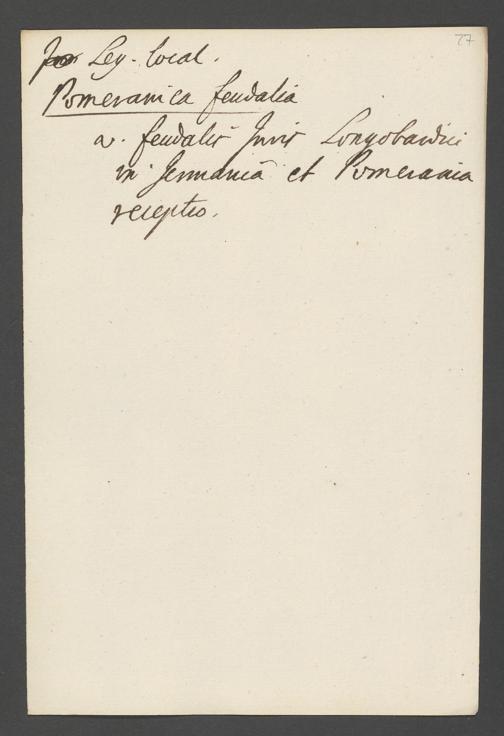 77
Leg. local.
Pomeranica feudalia
v. feudalis Juris Longobardici
in Germania et Pomerania
receptio.